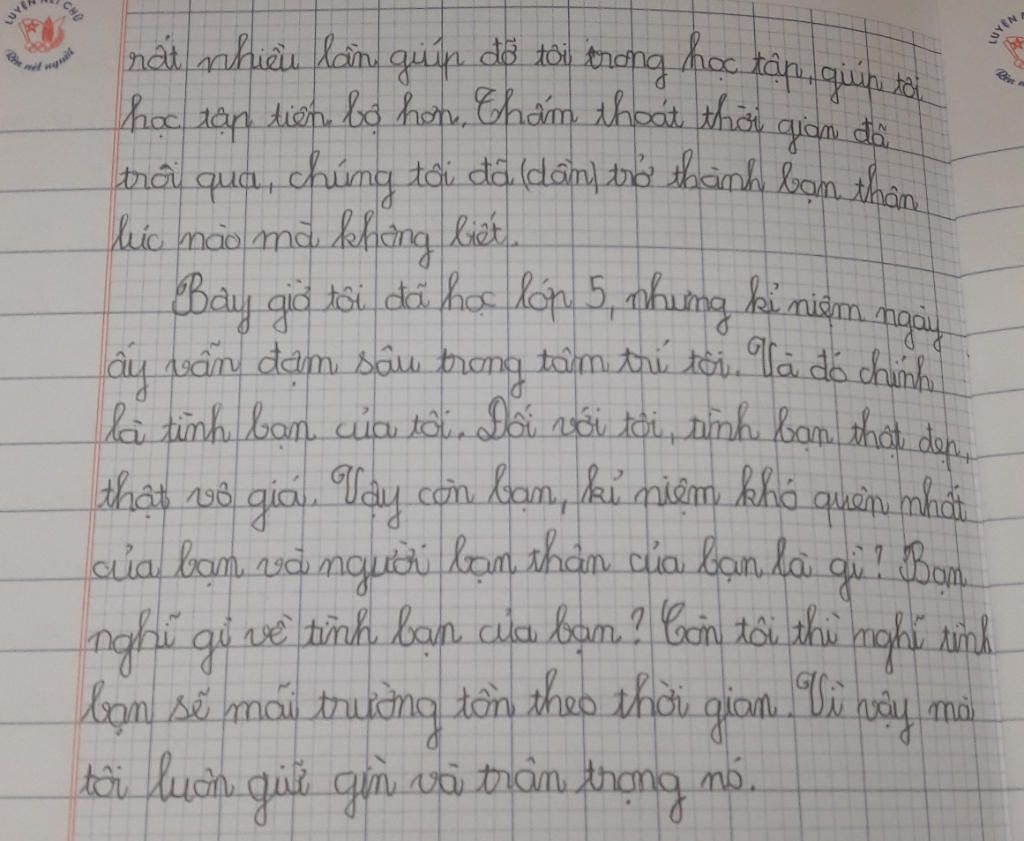 LUYỆN NÉT CHỮ
Rèn nết người
rất nhiều lần giúp đỡ tôi trong học tập, giúp tôi
học tập tiến bộ hơn. Thấm thoát thời gian đã
trôi qua, chúng tôi đã (dần) trở thành bạn thân
lúc nào mà không biết.
Bây giờ tôi đã học lớp 5, nhưng kỉ niệm ngày
ấy vẫn đậm sâu trong tâm trí tôi. Và đó chính
là tình bạn của tôi. Đối với tôi, tình bạn thật đẹp,
thật vô giá. Vậy còn bạn, kỉ niệm khó quên nhất
của bạn và người bạn thân của bạn là gì? Bạn
nghĩ gì về tình bạn của bạn? Còn tôi thì nghĩ tình
bạn sẽ mãi trường tồn theo thời gian. Vì vậy mà
tôi luôn giữ gìn và trân trọng nó.